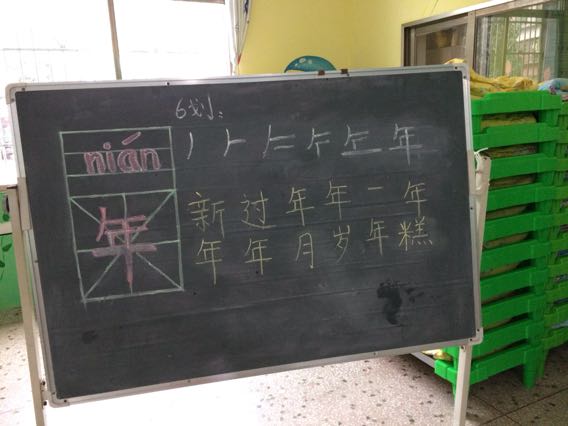 6划:
nián
年
丿 年
新年
过年
年月
年岁
一年
年糕